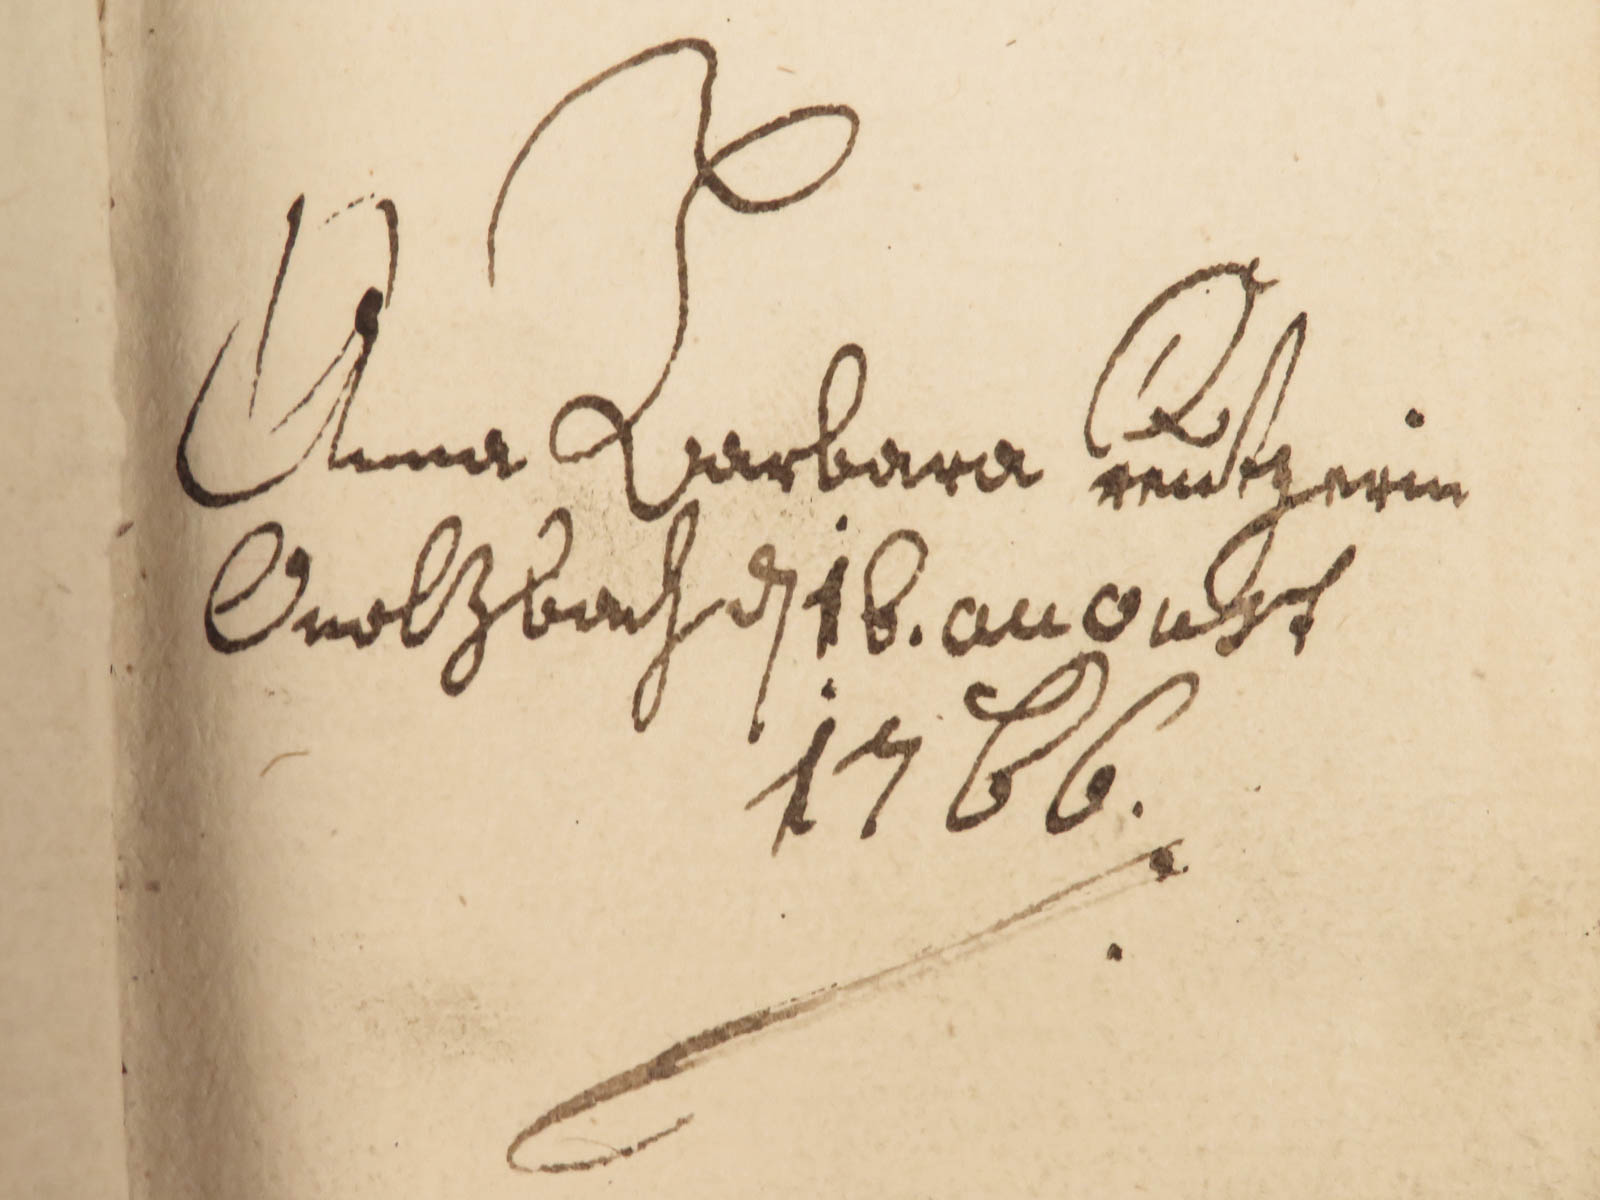 Anna Barbara Creutzerin
Onolzbach d 18. august
1766.